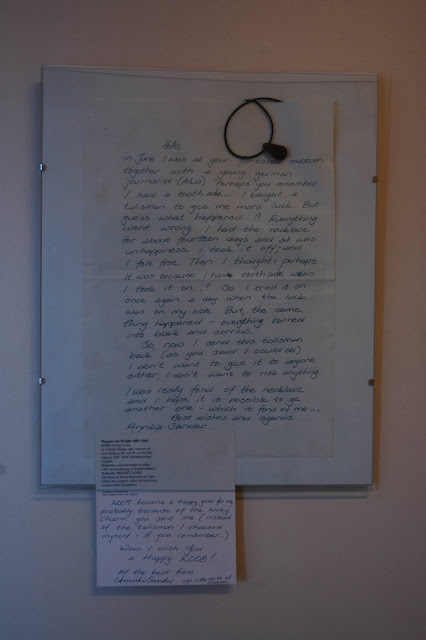 Hello,
in June I was at your fantastic museum
together with a young german
journalist (Alva) Perhaps you remember,
I had a toothade... I bought a
talisman to give me more luck. But
guess what happened...!? Everything
went wrong. I had the necklace
for about fourteen days and it was
unhappiness. I took it off, and
I felt free. Then I thought: perhaps
it was because I have toothade when
I took it on...? So I tried it on
once again a day when the luck
was on my side. But, the same
thing happened - everything turned
into black and sorrow.
So now I send this talisman
back (as you said I could do)
I don't want to give it to anyone,
either, I don't want to risk anything
I was really fond of the necklace
and I hope it is possible to ge
another one - which is fond of me...
Best wishes and regards
Annika Sander
2007 became a happy year for me,
probably because of the lucky
charm you sent me (instead
of the talisman I choosed
myself - if you remember..)
Now I wish you
a Happy 2008!
All the best from
Annika Sander up in the north of